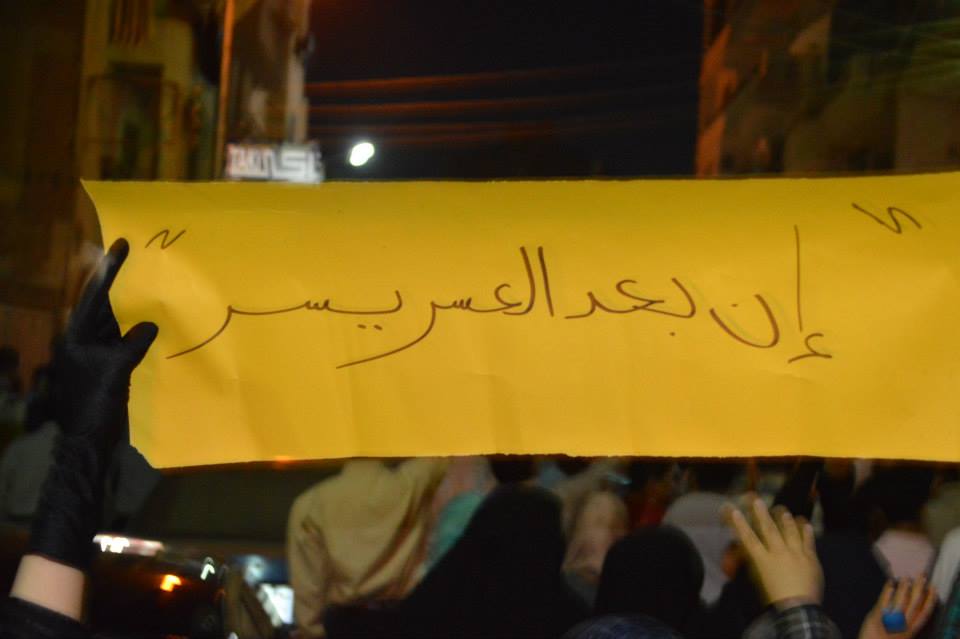 "إن بعد العسر يسر"